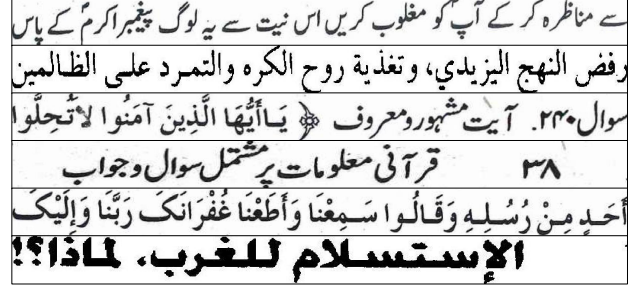 سے مناظرہ کر کے آپ کو مغلوب کریں اس نیت سے یہ لوگ پیغمبر اکرمؐ کے پاس
رفض النهج اليزيدي، وتغذية روح الكره والتمرد على الظالمين
سوال ۲۴۰. آیت مشہور و معروف ﴿ يَاأَيُّهَا الَّذِينَ آمَنُوا لاَ تُحِلُّوا
۳۸ قرآنی معلومات پر مشتمل سوال و جواب
أَحَدٍ مِنْ رُسُلِهِ وَقَالُوا سَمِعْنَا وَأَطَعْنَا غُفْرَانَكَ رَبَّنَا وَإِلَيْكَ
الإستسلام للغرب، لماذا؟!